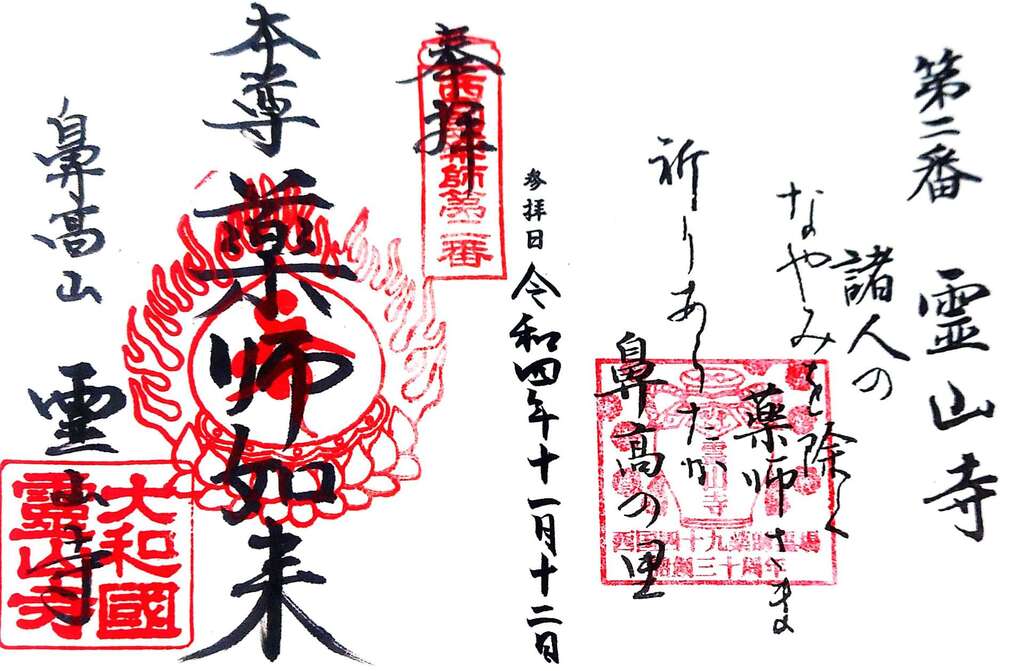 第二番 霊山寺
諸人の
なやみを除く
薬師さま
祈りあらたか
鼻高の里
西国四十九薬師霊場
三十周年
参拝日 令和四年十一月十二日
奉拝
西国薬師第二番
本尊 薬師如来
鼻高山 霊山寺
大和國
霊山寺